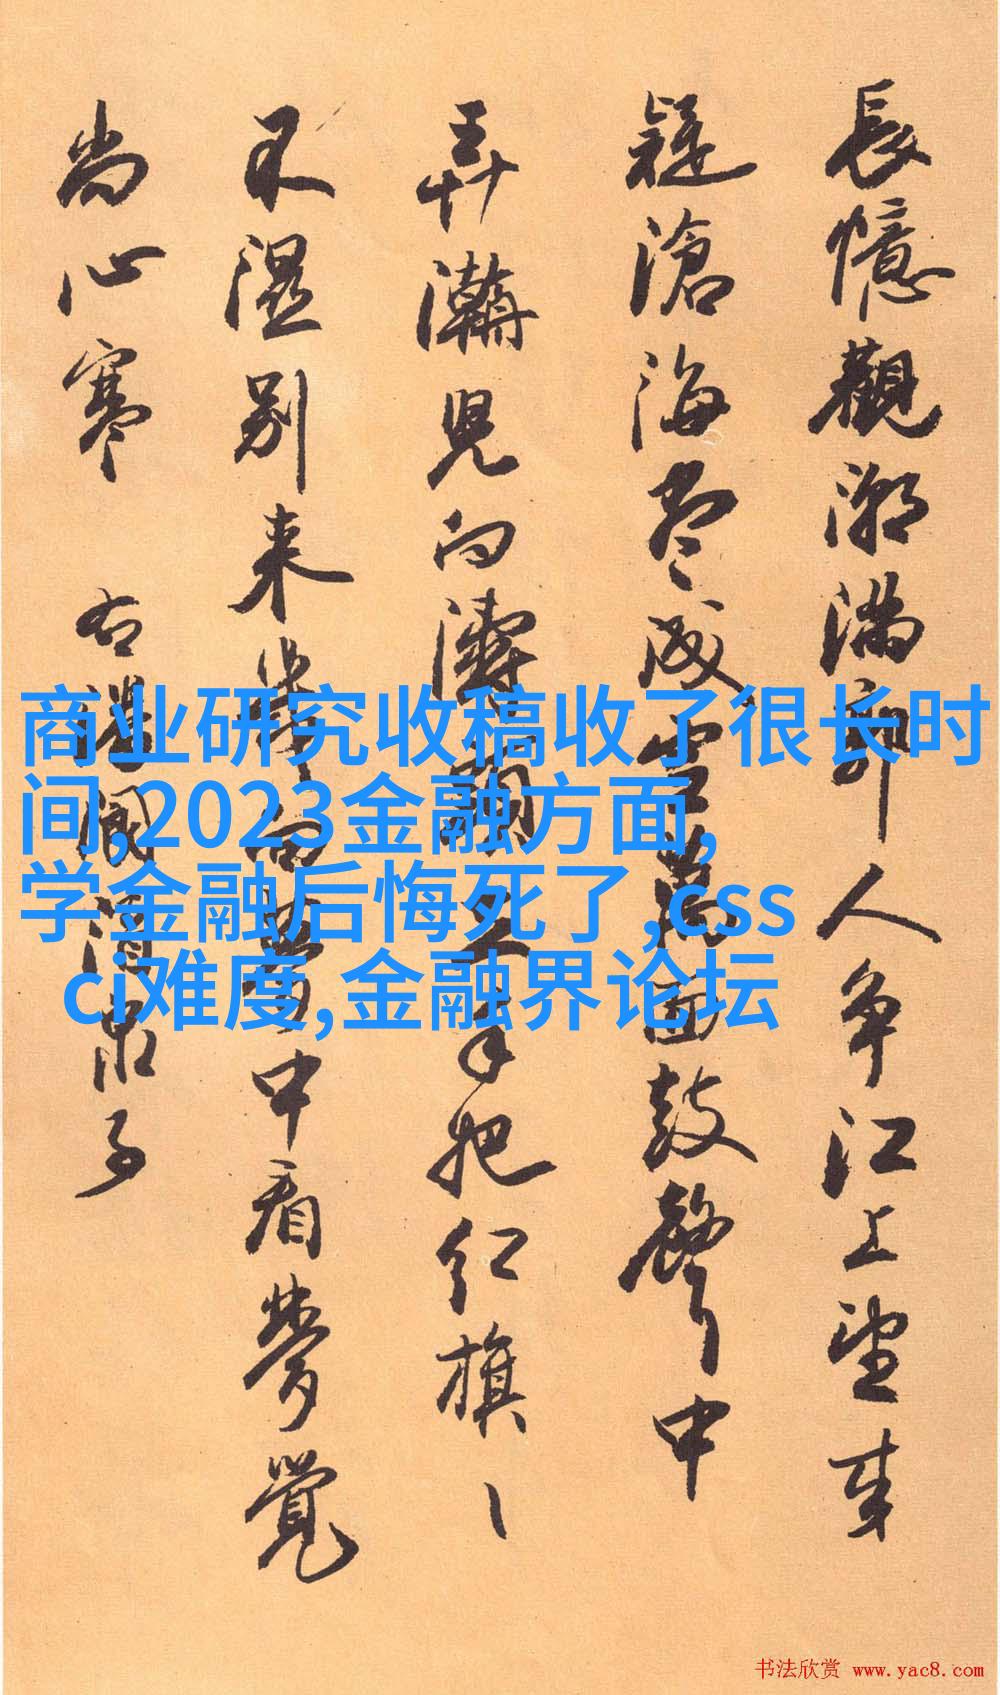 長憶觀潮滿郭人争江上望来
疑滄海尽成空萬面鼓聲中
弄濤児向濤頭立手把红旗、
不濕别来幾向夢中看夢覺
尚心寒 右潘閬酒泉子
商业研究收稿收了很长时
间,2023金融方面,
学金融后悔死了,css
ci难度,金融界论坛
书法欣赏 www.yac8.com